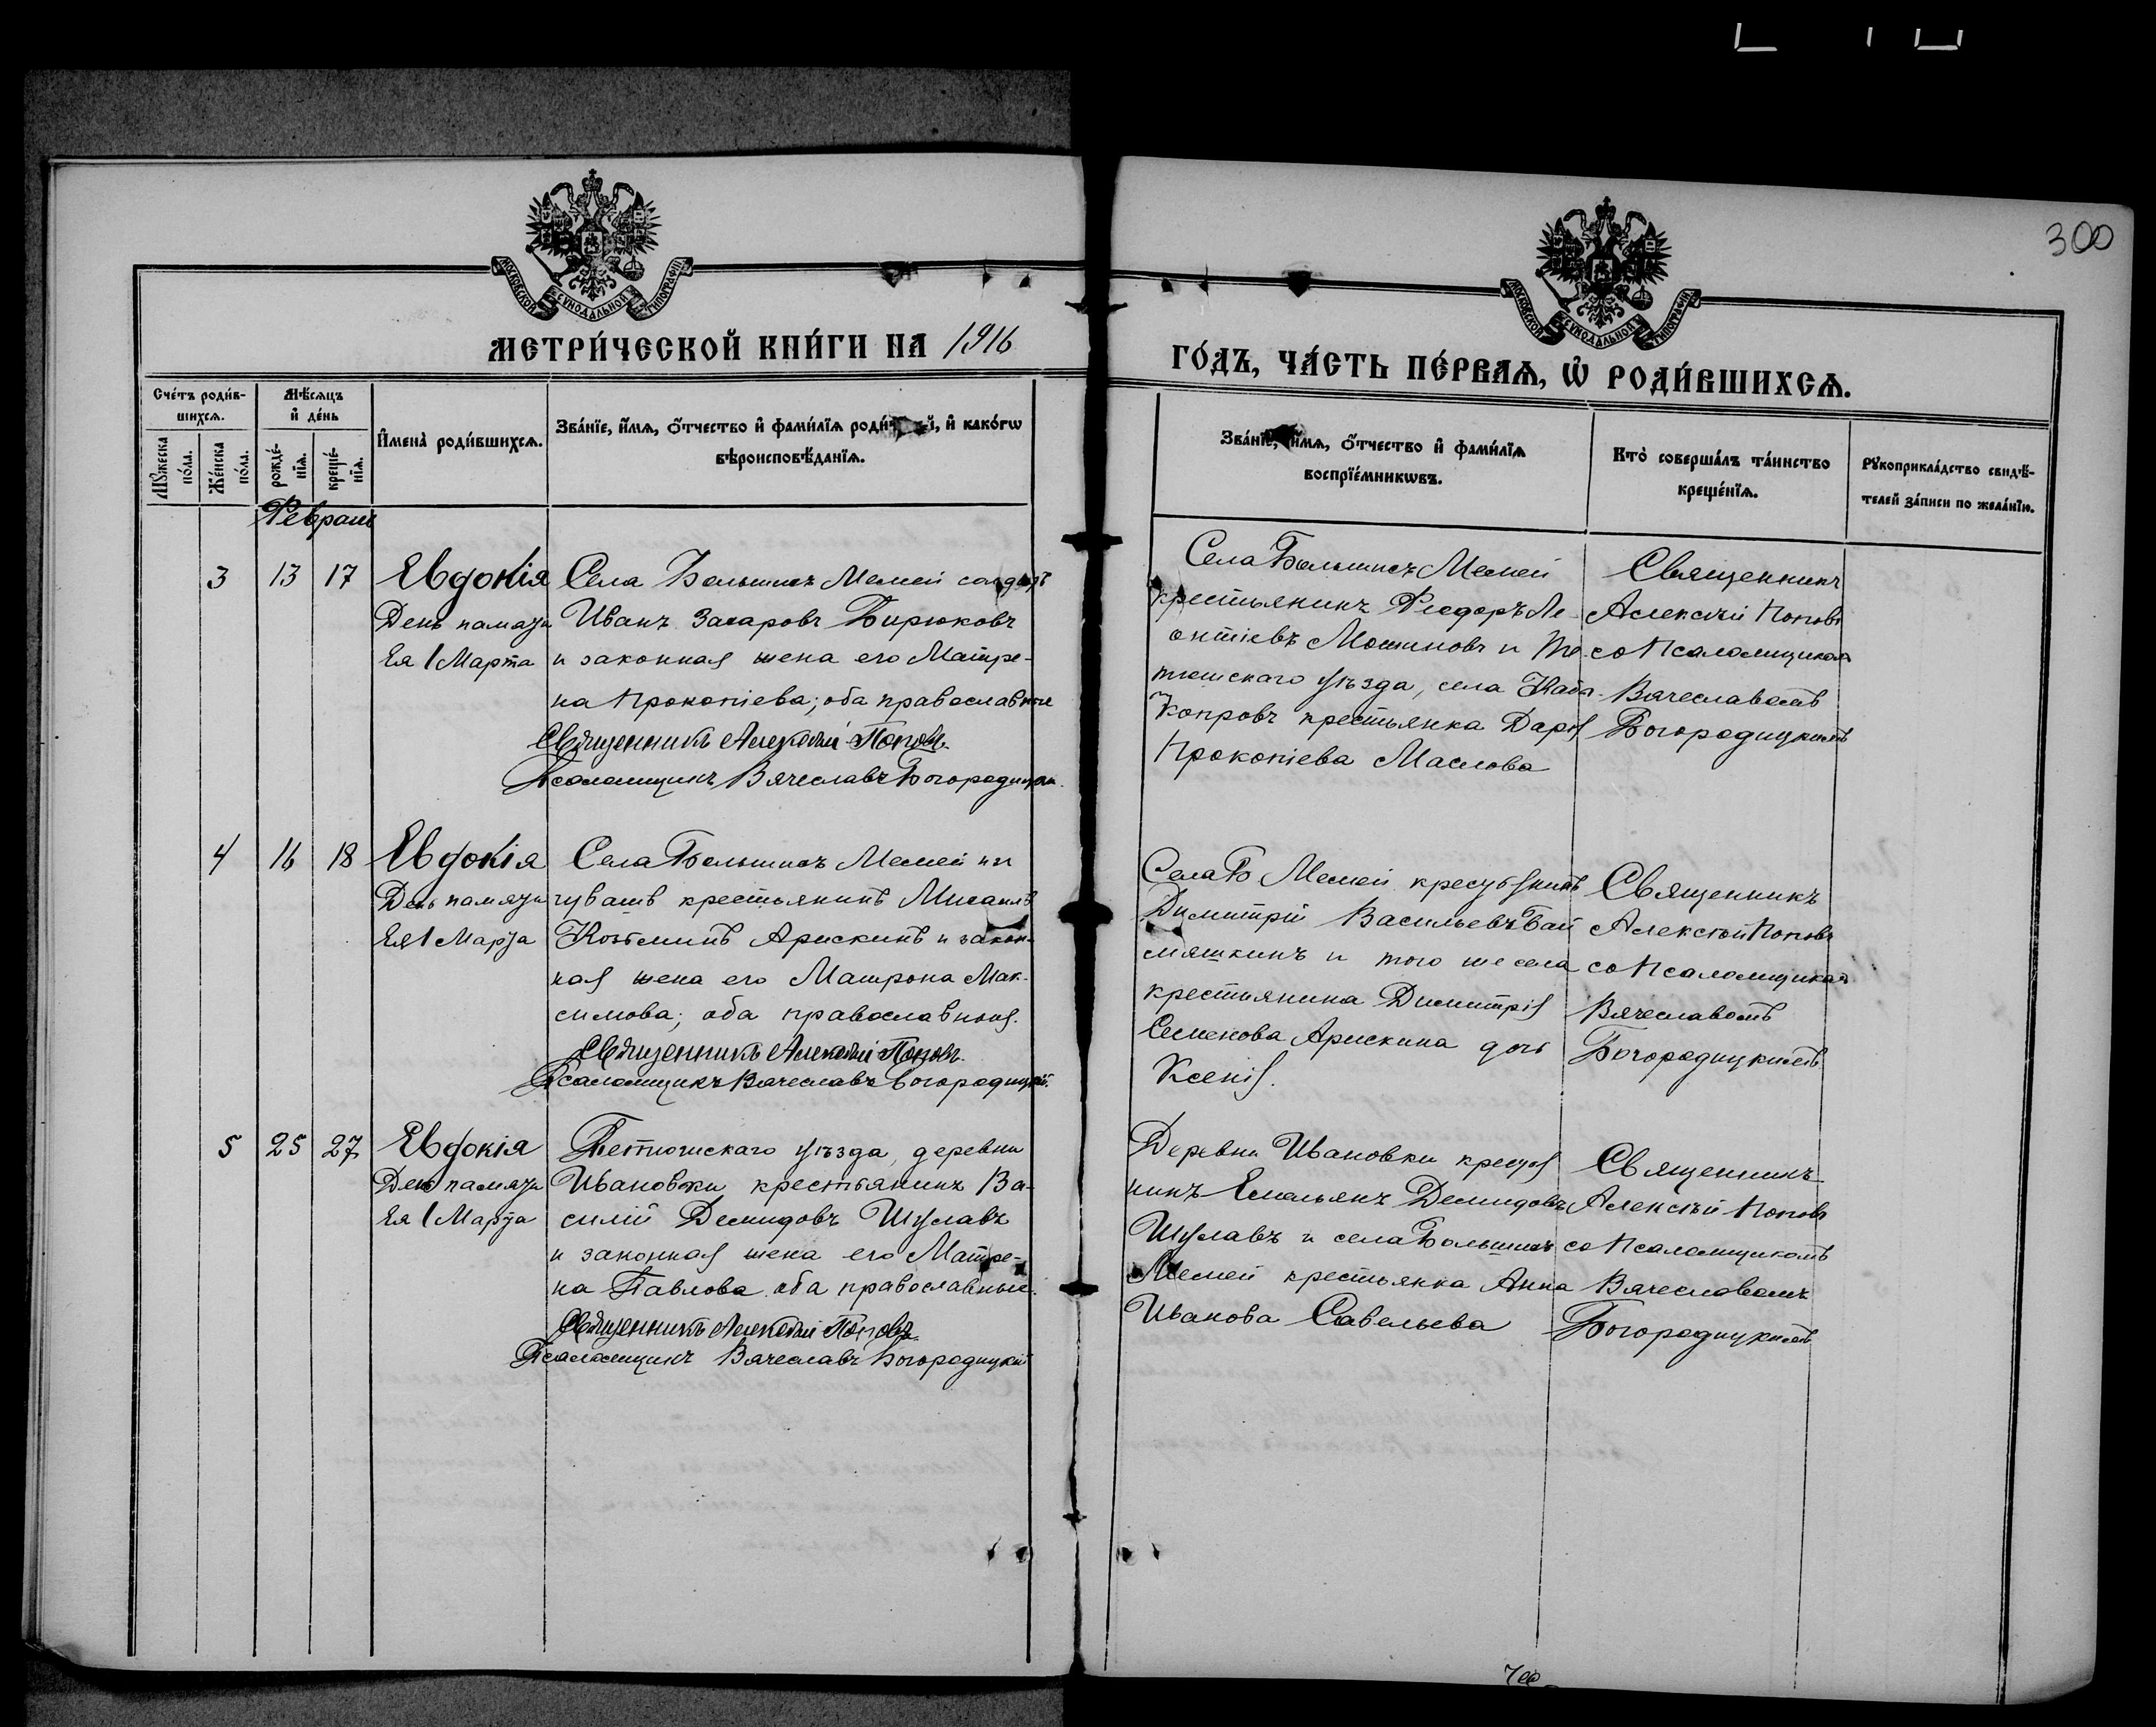 300
МОСКОВСКОЙ СѴНОДАЛЬНОЙ ТИПОГРАФІИ
МОСКОВСКОЙ СѴНОДАЛЬНОЙ ТИПОГРАФІИ
МЕТРИ́ЧЕСКОЙ КНИ́ГИ НА 1916
ГО́ДЪ, ЧА́СТЬ ПЕ́РВАѦ, Ѡ҆ РОДИ́ВШИХСѦ.
Сче́тъ роди́в-
шихсѧ.
Мѣ́сѧцъ
и҆ де́нь
Мꙋ́жеска
по́ла.
Же́нска
по́ла.
рожде́-
нїѧ.
креще́-
нїѧ.
И҆мена̀ роди́вшихсѧ.
Зва́нїе, и҆́мѧ, ѻ҆́тчество и҆ фами́лїѧ и҆ како́гѡ
вѣроисповѣ́данїѧ.
Зва́нїе, и҆́мѧ, ѻ҆́тчество и҆ фами́лїѧ
воспрїе́мникѡвъ.
Кто̀ соверша́лъ та́инство
креще́нїѧ.
Рꙋкоприкла́дство свидѣ́-
телей за́писи по жела́нїю.
Февраль
3 13 17 Евдокія
День памяти
Ея 1 Марта
Села Большихъ Мемей солдатъ
Иванъ Захаровъ Бирюковъ
и законная жена его Матре-
на Прокопіева; оба православные
Священникъ Алексѣй Поповъ.
Псаломщикъ Вячеславъ Богородицкій.
Села Большихъ Мемей
крестьянинъ Ѳеодоръ Ле-
онтіевъ Мошиновъ и Те-
тюшскаго уѣзда, села Каба-
Копровъ крестьянка Дарія
Прокопіева Маслова
Священникъ
Алексѣй Поповъ
со Псаломщикомъ
Вячеславомъ
Богородицкимъ
4 16 18 Евдокія
День памяти
Ея 1 Марта
Села Большихъ Мемей изъ
чувашъ крестьянинъ Михаилъ
Козьминъ Арискинъ и закон-
ная жена его Матрона Мак-
симова; оба православныя.
Священникъ Алексѣй Поповъ.
Псаломщикъ Вячеславъ Богородицкій.
Села Б Мемей крестьянинъ
Димитрій Васильевъ Бай
мяшкинъ и того же села
крестьянина Димитрія
Семенова Арискина дочь
Ксенія.
Священникъ
Алексѣй Поповъ
со Псаломщикомъ
Вячеславомъ
Богородицкимъ
5 25 27 Евдокія
День памяти
Ея 1 Марта
Тетюшскаго уѣзда, деревни
Ивановки крестьянинъ Ва-
силій Демидовъ Шуславъ
и законная жена его Матре-
на Павлова оба православные.
Священникъ Алексѣй Поповъ.
Псаломщикъ Вячеславъ Богородицкій
Деревни Ивановки крестья
нинъ Емельянъ Демидовъ
Шуславъ и села Большихъ
Мемей крестьянка Анна
Иванова Савельева
Священникъ
Алексѣй Поповъ
со Псаломщикомъ
Вячеславомъ
Богородицкимъ